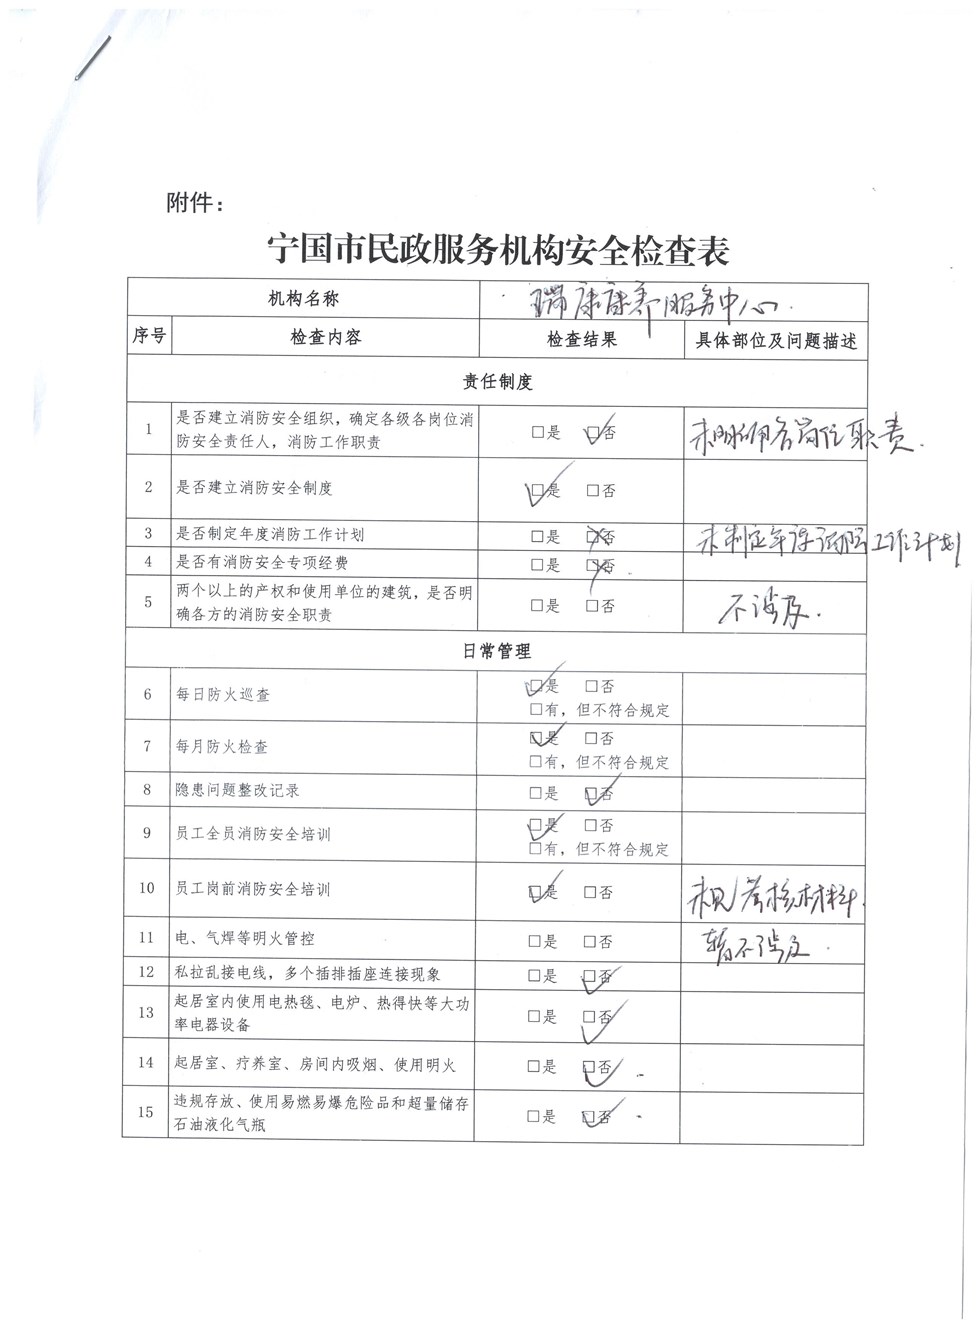 附件：
宁国市民政服务机构安全检查表
机构名称 瑞康康养服务中心
序号 检查内容 检查结果 具体部位及问题描述
责任制度
1 是否建立消防安全组织，确定各级各岗位消 □是 □否 未明确各岗位职责.
防安全责任人，消防工作职责
2 是否建立消防安全制度 □是 □否
3 是否制定年度消防工作计划 □是 □否 未制定年度消防工作计划
4 是否有消防安全专项经费 □是 □否
5 两个以上的产权和使用单位的建筑，是否明 □是 □否 不涉及.
确各方的消防安全职责
日常管理
6 每日防火巡查 □是 □否
□有，但不符合规定
7 每月防火检查 □是 □否
□有，但不符合规定
8 隐患问题整改记录 □是 □否
9 员工全员消防安全培训 □是 □否
□有，但不符合规定
10 员工岗前消防安全培训 □是 □否 未见考核材料.
11 电、气焊等明火管控 □是 □否 暂不涉及.
12 私拉乱接电线，多个插排插座连接现象 □是 □否
13 起居室内使用电热毯、电炉、热得快等大功 □是 □否
率电器设备
14 起居室、疗养室、房间内吸烟、使用明火 □是 □否
15 违规存放、使用易燃易爆危险品和超量储存 □是 □否
石油液化气瓶